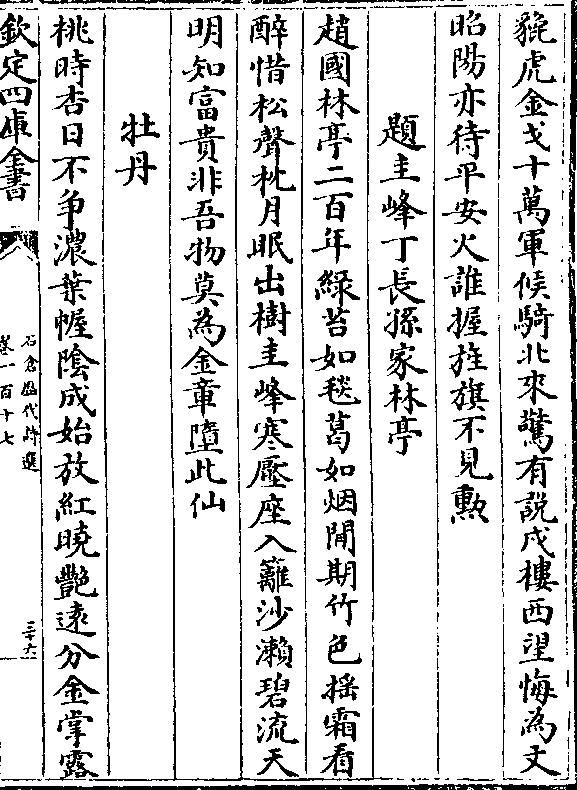 貔虎金戈十萬軍候騎北來驚有説戍樓西望悔為文
昭陽亦待平安火誰握旌旗不見勲
題圭峰丁長孫家林亭
趙國林亭二百年緑苔如毯葛如烟閒期竹色揺霜看
醉惜松聲枕月眠出樹圭峰寒壓座入籬沙瀨碧流天
明知富貴非吾物莫為金章墮此仙
牡丹
桃時杏日不爭濃葉幄陰成始放紅曉艷遠分金掌露
欽定四庫全書
石倉歴代詩選
卷一百十七
三十六